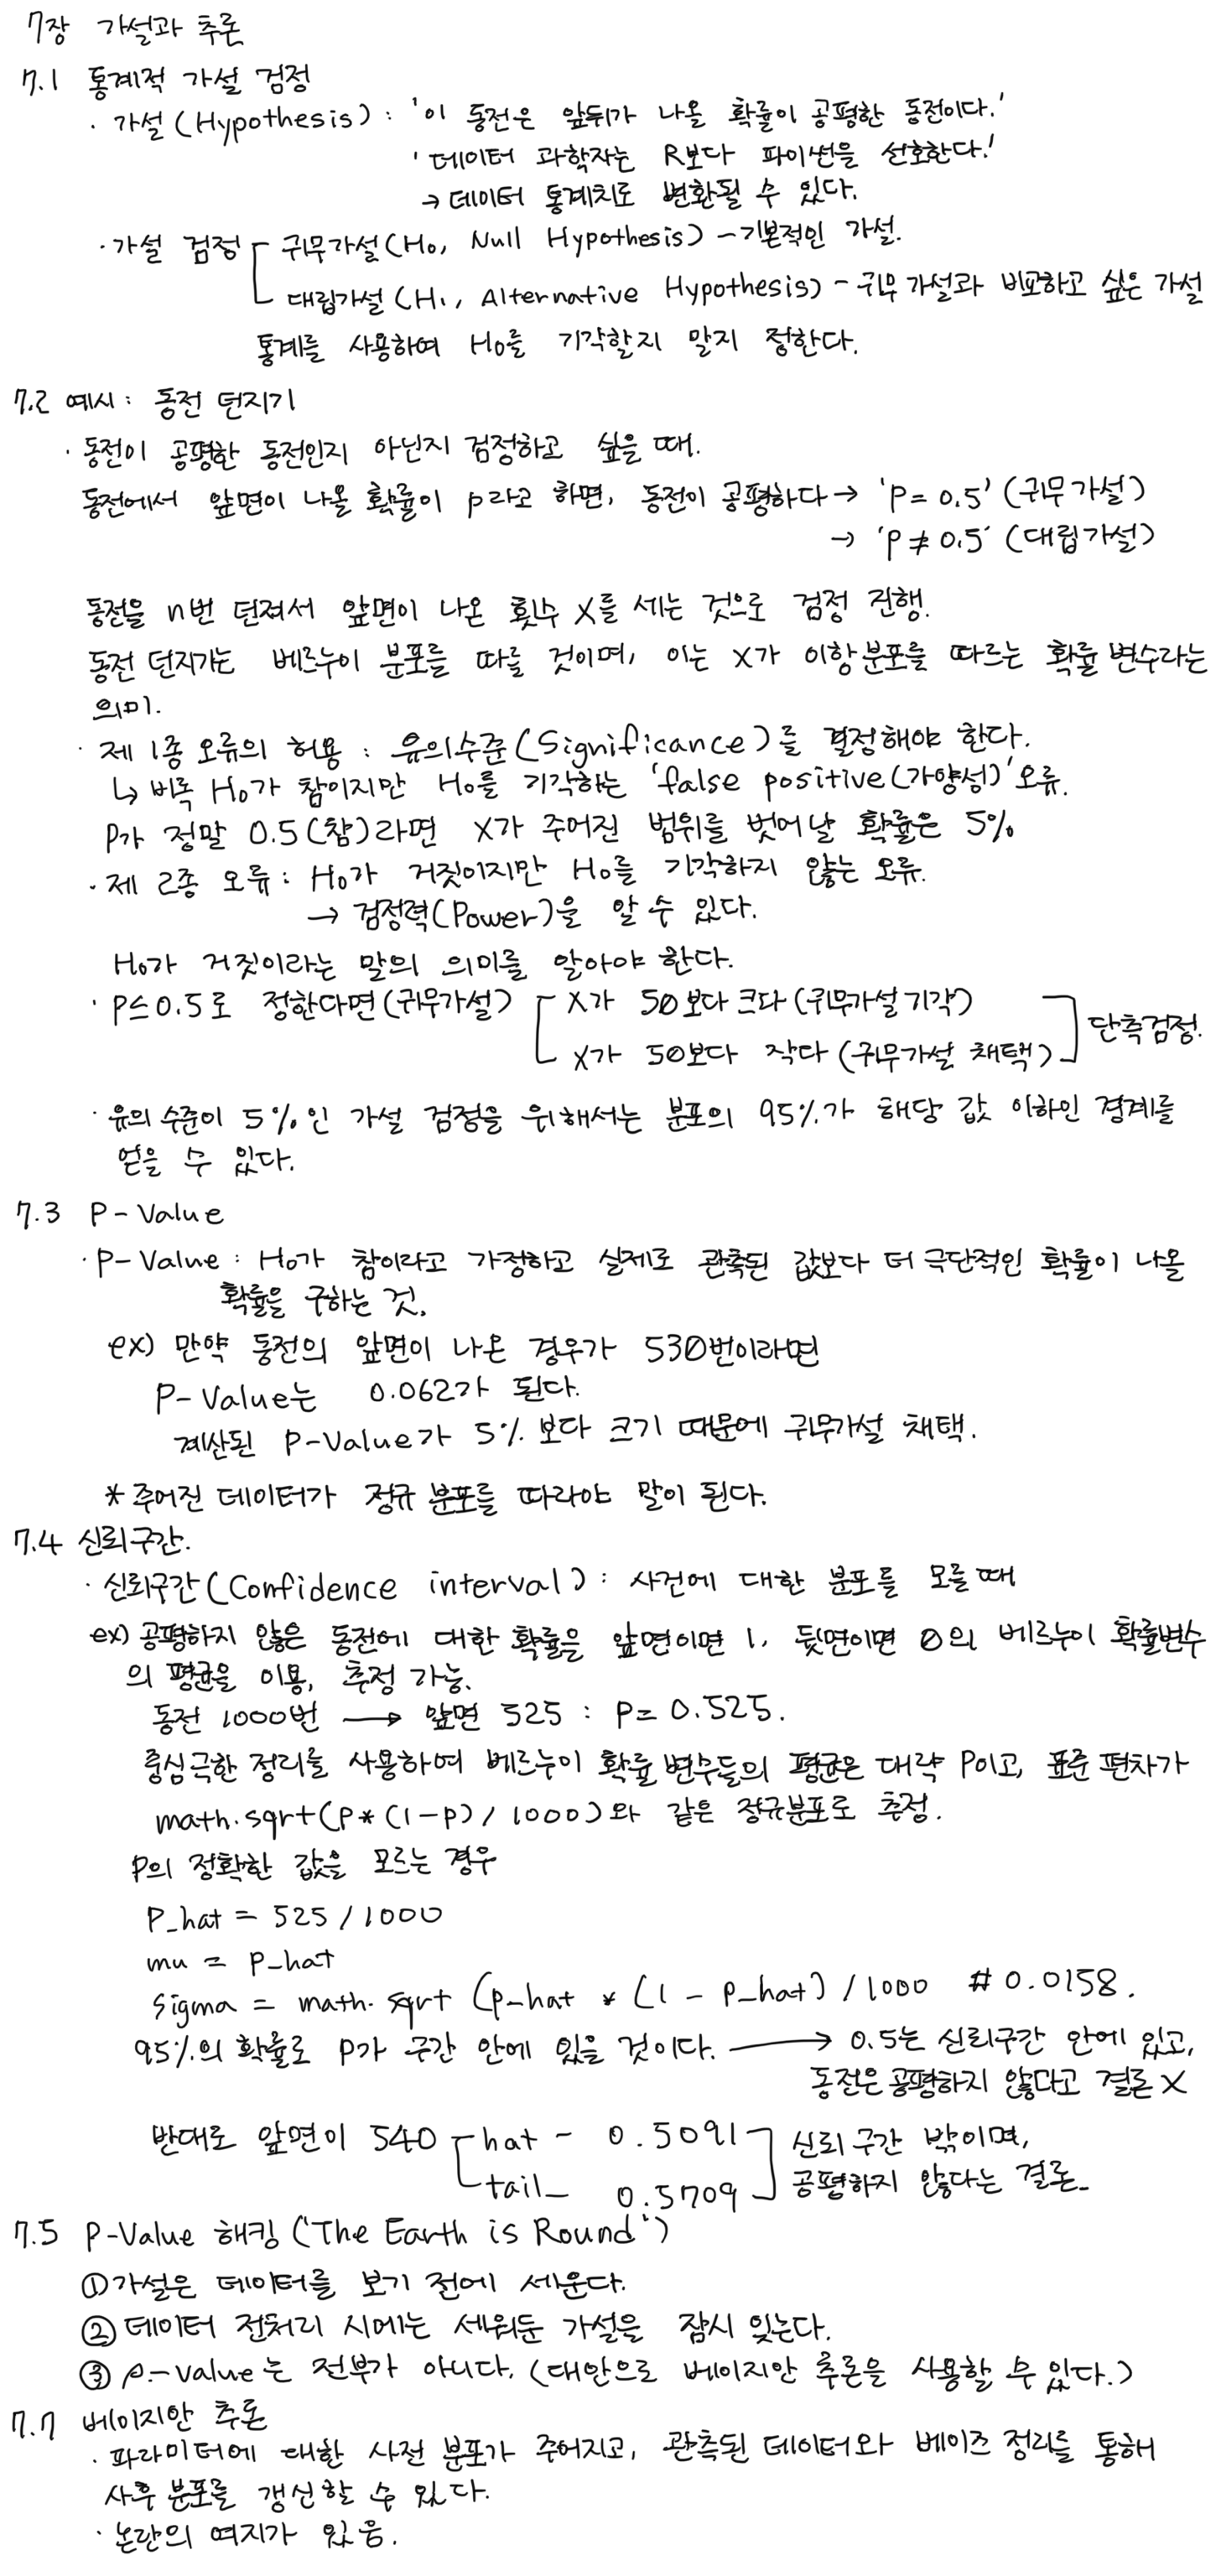 7장 가설과 추론
7.1 통계적 가설 검정
· 가설(Hypothesis): '이 동전은 앞뒤가 나올 확률이 공평한 동전이다.'
'데이터 과학자는 R보다 파이썬을 선호한다.'
→ 데이터 통계치로 변환될 수 있다.
· 가설 검정 귀무가설(H0, Null Hypothesis) - 기본적인 가설.
대립가설(H1, Alternative Hypothesis) - 귀무 가설과 비교하고 싶은 가설
통계를 사용하여 H0를 기각할지 말지 정한다.
7.2 예시: 동전 던지기
· 동전이 공평한 동전인지 아닌지 검정하고 싶을 때.
동전에서 앞면이 나올 확률이 p라고 하면, 동전이 공평하다 → 'P = 0.5' (귀무가설)
→ 'P ≠ 0.5' (대립가설)
동전을 n번 던져서 앞면이 나온 횟수 X를 세는 것으로 검정 진행.
동전 던지기는 베르누이 분포를 따를 것이며, 이는 X가 이항분포를 따르는 확률 변수라는
의미.
· 제 1종 오류의 허용 : 유의수준(Significance)를 결정해야 한다.
↳ 비록 H0가 참이지만 H0를 기각하는 'false positive(가양성)' 오류.
P가 정말 0.5(참)라면 X가 주어진 범위를 벗어날 확률은 5%
· 제 2종 오류: H0가 거짓이지만 H0를 기각하지 않는 오류.
→ 검정력(Power)을 알 수 있다.
H0가 거짓이라는 말의 의미를 알아야 한다.
· P≤0.5로 정한다면(귀무가설) X가 50보다 크다(귀무가설 기각)
X가 50보다 작다(귀무가설 채택) 단측검정.
· 유의 수준이 5%인 가설 검정을 위해서는 분포의 95%가 해당 값 이하인 경계를
얻을 수 있다.
7.3 P-Value
· P-Value : H0가 참이라고 가정하고 실제로 관측된 값보다 더 극단적인 확률이 나올
확률을 구하는 것.
ex) 만약 동전의 앞면이 나온 경우가 530번이라면
P-Value는 0.062가 된다.
계산된 P-Value가 5%보다 크기 때문에 귀무가설 채택.
* 주어진 데이터가 정규 분포를 따라야 말이 된다.
7.4 신뢰구간.
· 신뢰구간(Confidence interval) : 사건에 대한 분포를 모를 때
ex) 공평하지 않은 동전에 대한 확률을 앞면이면 1, 뒷면이면 0의 베르누이 확률변수
의 평균을 이용, 추정 가능.
동전 1000번 → 앞면 525 : P= 0.525.
중심극한 정리를 사용하여 베르누이 확률 변수들의 평균은 대략 P이고, 표준 편차가
math.sqrt(P*(1-P)/1000)와 같은 정규분포로 추정.
P의 정확한 값을 모르는 경우
P_hat = 525/1000
mu = p_hat
sigma = math.sqrt (p_hat * (1 - p_hat) / 1000 # 0.0158.
95%의 확률로 P가 구간 안에 있을 것이다. → 0.5는 신뢰구간 안에 있고,
동전은 공평하지 않다고 결론 X
반대로 앞면이 540 hat - 0.5091 신뢰 구간 밖이며,
tail_ 0.5709 공평하지 않다는 결론_
7.5 P-Value 해킹 ('The Earth is Round')
① 가설은 데이터를 보기 전에 세운다.
② 데이터 전처리 시에는 세워둔 가설을 잠시 잊는다.
③ P-value는 전부가 아니다. (대안으로 베이지안 추론을 사용할 수 있다.)
7.7 베이지안 추론
· 파라미터에 대한 사전 분포가 주어지고, 관측된 데이터와 베이즈 정리를 통해
사후 분포를 갱신할 수 있다.
· 논란의 여지가 있음.